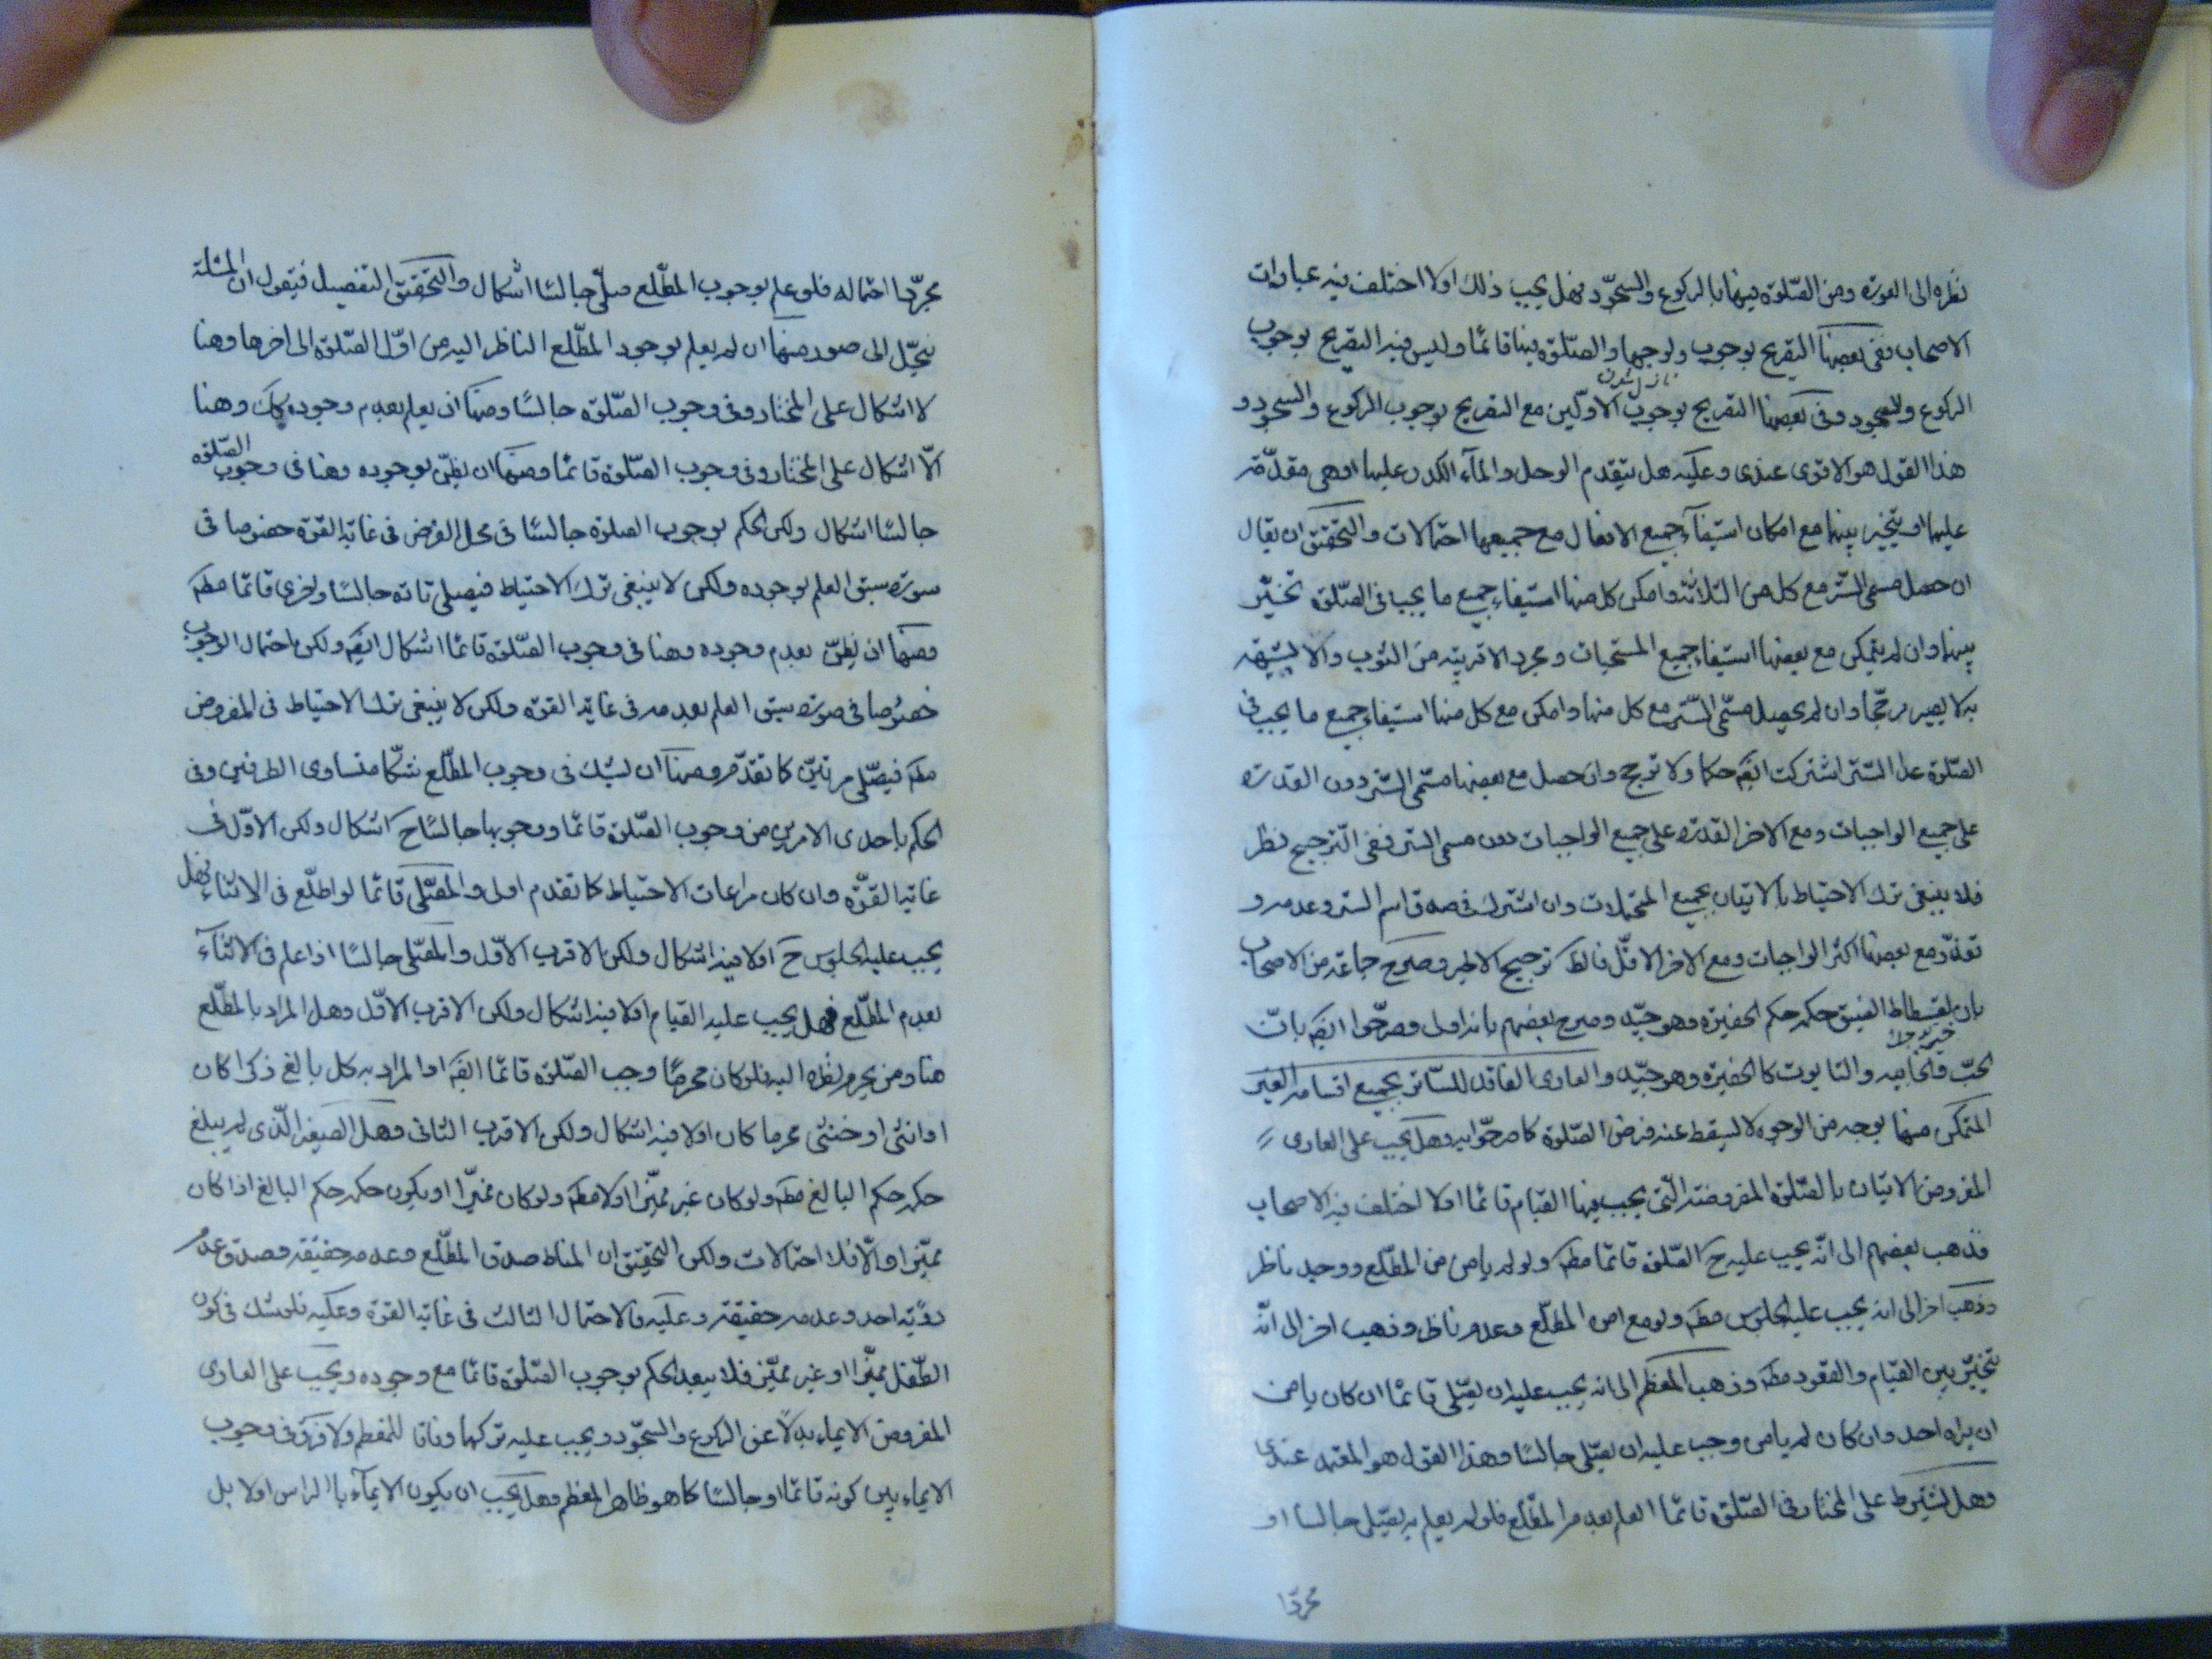 نظره الى العورة ومن الصّلوة فيها بالركوع والسجود فهل يجب ذلك اولا اختلف فيه عبارات
الاصحاب ففى بعضها التصريح بوجوب ولوجها والصّلوة فيها قائمًا وليس فيه التصريح بوجوب
الركوع والسجود وفى بعضها التصريح بوجوب الاوّلين مع التصريح بوجوب الركوع والسجود و
هذا القول هو الاقوى عندى وعليه هل يتقدم الوحل والمآء الكدر عليها اوهى مقدّمة
عليهما او يتخير بينهما مع امكان استيفآء جميع الافعال مع جميعها احتمالات والتحقيق ان يقال
ان حصل مسمى الستر مع كل من الثلاثة وامكن كل منها استيفاء جميع ما يجب فى الصّلوة تخيّر
بينها وان لم يتمكن مع بعضها استيفاء جميع المستحبات ومجرد الاقربية من الثوب والاشبهية
به لا يصير مرجّحا وان لم يحصل مسمّى الستر مع كل منها وامكن مع كل منها استيفاء جميع ما يجب فى
الصّلوة عدا الستر اشتركت ايضا حكما ولا ترجيح وان حصل مع بعضها مسمّى الستر دون القدرة
على جميع الواجبات ومع الاخر القدرة على جميع الواجبات دون مسمى الستر ففى الترجيح نظر
فلا ينبغى ترك الاحتياط بالاتيان بجميع المحتملات وان اشتركت فى صدق اسم الستر وعدمه و
تعذّر مع بعضها اكثر الواجبات ومع الاخر الاقلّ فالظ ترجيح الاخير وصرح جماعة من الاصحاب
بان الفسطاط الضيق حكمه حكم الحفيرة وهو جيّد وصرح بعضهم بانه اولى وصرّحوا ايضا بانّ
الحبّ والخابيه والتابوت كالحفيرة وهو جيّد والعارى الفاقد للساتر بجميع اقسامه الغير
المتمكن منها بوجه من الوجوه لا يسقط عنه فرض الصّلوة كما صرحوا به وهل يجب على العارى
المفروض الاتيان بالصّلوة المفروضة الّتى يجب فيها القيام قائما اولا اختلف فيه الاصحاب
فذهب بعضهم الى انّه يجب عليه ح الصّلوة قائما مطـ ولو لم يامن من المطّلع ووجد ناظر
وذهب اخر الى انه يجب عليه الجلوس مطـ ولو مع امن المطّلع وعدم ناظر وذهب اخر الى انّه
يتخيّر بين القيام والقعود مطـ وذهب المعظم الى انه يجب عليه ان يصلّى قائمًا ان كان يامن
ان يراه احد وان كان لم يامن وجب عليه ان يصلّى جالسًا وهذا القول هو المعتمد عندى
وهل يشترط على المختار فى الصّلوة قائما العلم بعدم المطّلع فلو لم يعلم به يصلّى جالسا او
مجردا
مجرّدا احتماله فلو علم بوجوب المطّلع صلّى جالسًا اشكال والتحقيق التفصيل فيقول ان المسئلة
ينحلّ الى صور منها ان لم يعلم بوجود المطّلع الناظر اليه من اوّل الصّلوة الى اخرها وهنا
لا اشكال على المختار وفى وجوب الصّلوة جالسًا ومنها ان يعلم بعدم وجوده كك وهنا
الّا اشكال على المختار وفى وجوب الصّلوة قائمًا ومنها ان يظنّ بوجوده وهنا فى وجوب الصّلوة
جالسًا اشكال ولكن الحكم بوجوب الصلوة جالسًا فى محل الفرض فى غاية القوّة خصوصا فى
صورة سبق العلم بوجوده ولكن لا ينبغى ترك الاحتياط فيصلى تارة جالسًا واخرى قائما مطـ
ومنها ان يظنّ بعدم وجوده وهنا فى وجوب الصّلوة قائمًا اشكال ايضا ولكن احتمال الوجوب
خصوصا فى صورة سبق العلم بعدمه فى غاية القوة ولكن لا ينبغى ترك الاحتياط فى المفروض
مطـ فيصّلى مرتين كما تقدّم ومنها ان يشك فى وجوب المطّلع شكّا متساوى الطرفين وفى
الحكم باحدى الامرين من وجوب الصّلوة قائمًا ووجوبها جالسًا ح اشكال ولكن الاوّل فى
غاية القوّة وان كان مراعات الاحتياط كما تقدم اولى والمصّلى قائما لو اطلع فى الاثناء فهل
يجب عليه الجلوس ح اولا فيه اشكال ولكن الاقرب الاوّل والمصّلى جالسًا اذا علم فى الاثنآء
بعدم المطّلع فهل يجب عليه القيام اولا فيه اشكال ولكن الاقرب الاوّل وهل المراد بالمطّلع
هنا من يحرم نظره اليه فلو كان محرمًا وجب الصّلوة قائما ايضا او المراد به كل بالغ ذكرا كان
او انثى او خنثى محرما كان اولا فيه اشكال ولكن الاقرب الثانى وهل الصغير الّذى لم يبلغ
حكمه حكم البالغ مطـ ولو كان غير مميّز او لا مطـ ولو كان مميّزا او يكون حكمه حكم البالغ اذا كان
مميّزا والّا فلا احتمالات ولكن التحقيق ان المناط صدق المطّلع وعدمه حقيقة وصدق عدم
رؤية احد وعدمه حقيقة وعليه فالاحتمال الثالث فى غاية القوة وعليه فلو شك فى كون
الطّفل مميّزا او غير مميّز فلا يبعد الحكم بوجوب الصّلوة قائما مع وجوده ويجب على العارى
المفروض الايماء بدلًا عن الركوع والسجود ويجب عليه تركهما وفاقا للمعظم ولا فرق فى وجوب
الايماء بين كونه قائما او جالسًا كما هو ظاهر المعظم وهل يجب ان يكون الايمآء بالراس اولا بل